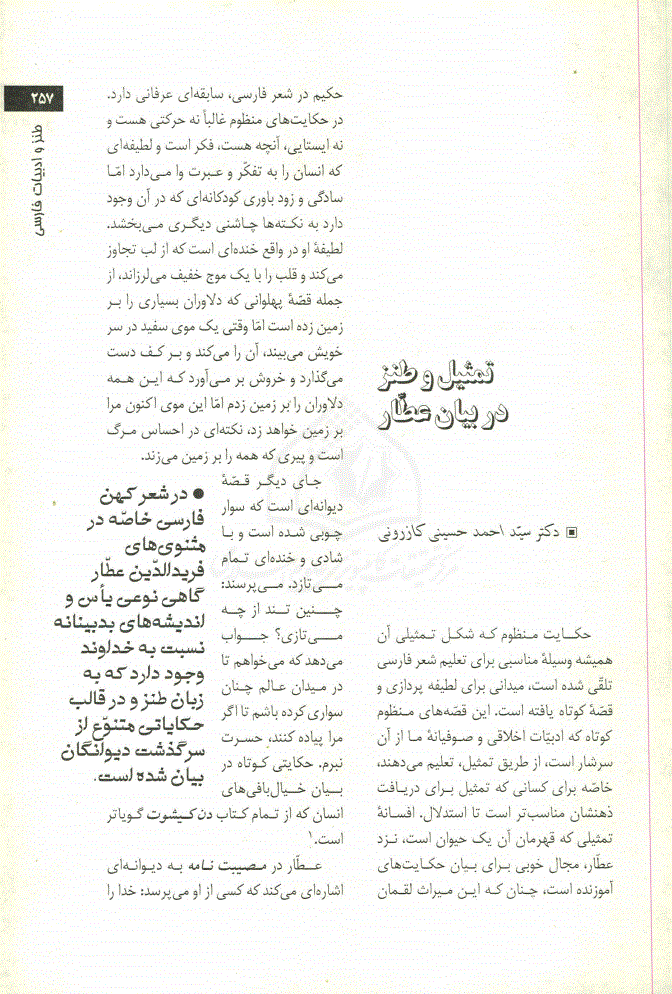 ۲۵۷
طنز و ادبیات فارسی
تمثیل و طنز
در بیان عطّار
دکتر سیّد احمد حسینی کازرونی
حکایت منظوم که شکل تمثیلی آن
همیشه وسیلهٔ مناسبی برای تعلیم شعر فارسی
تلقّی شده است، میدانی برای لطیفه پردازی و
قصّهٔ کوتاه یافته است. این قصّه‌های منظوم
کوتاه که ادبیّات اخلاقی و صوفیانهٔ ما از آن
سرشار است، از طریق تمثیل، تعلیم می‌دهند،
خاصّه برای کسانی که تمثیل برای دریافت
ذهنشان مناسب‌تر است تا استدلال. افسانهٔ
تمثیلی که قهرمان آن یک حیوان است، نزد
عطّار، مجال خوبی برای بیان حکایت‌های
آموزنده است، چنان که این میراث لقمان
حکیم در شعر فارسی، سابقه‌ای عرفانی دارد.
در حکایت‌های منظوم غالباً نه حرکتی هست و
نه ایستایی، آنچه هست، فکر است و لطیفه‌ای
که انسان را به تفکّر و عبرت وا می‌دارد امّا
سادگی و زود باوری کودکانه‌ای که در آن وجود
دارد به نکته‌ها چاشنی دیگری می‌بخشد.
لطیفهٔ او در واقع خنده‌ای است که از لب تجاوز
می‌کند و قلب را با یک موج خفیف می‌لرزاند، از
جمله قصّهٔ پهلوانی که دلاوران بسیاری را بر
زمین زده است امّا وقتی یک موی سفید در سر
خویش می‌بیند، آن را می‌کند و بر کف دست
می‌گذارد و خروش بر می‌آورد که این همه
دلاوران را بر زمین زدم امّا این موی اکنون مرا
بر زمین خواهد زد، نکته‌ای در احساس مرگ
است و پیری که همه را بر زمین می‌زند.
جای دیگر قصّهٔ
دیوانه‌ای است که سوار
چوبی شده است و با
شادی و خنده‌ای تمام
می‌تازد. می‌پرسند:
چنین تند از چه
می‌تازی؟ جواب
می‌دهد که می‌خواهم تا
در میدان عالم چنان
سواری کرده باشم تا اگر
مرا پیاده کنند، حسرت
نبرم. حکایتی کوتاه در
بیان خیال‌بافی‌های
انسان که از تمام کتاب دن‌کیشوت گویاتر
است.۱
عطّار در مصیبت نامه به دیوانه‌ای
اشاره‌ای می‌کند که کسی از او می‌پرسد: خدا را
● در شعر کهن
فارسی خاصّه در
مثنوی‌های
فریدالدّین عطّار
گاهی نوعی یأس و
اندیشه‌های بدبینانه
نسبت به خداوند
وجود دارد که به
زبان طنز و در قالب
حکایاتی متنوّع از
سرگذشت دیوانگان
بیان شده است.